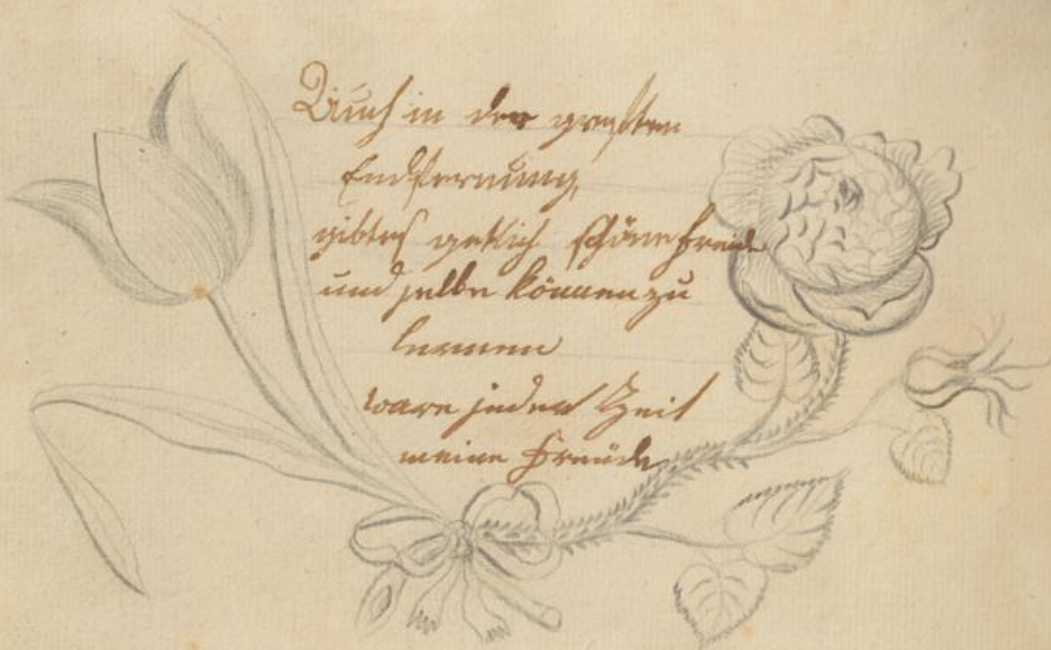 Auch in der gresten
Endfernung,
gibtes gettlich schöne freide
und selbe können zu
lernen
ware jeder Zeit
meine Freüde